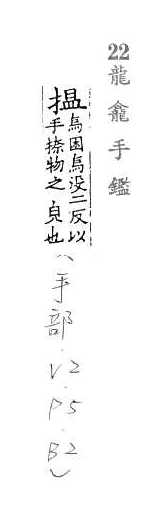 22龍龕手鑑
揾烏困烏没二反以
手捺物之皃也
(手部.V2.P5.B2)